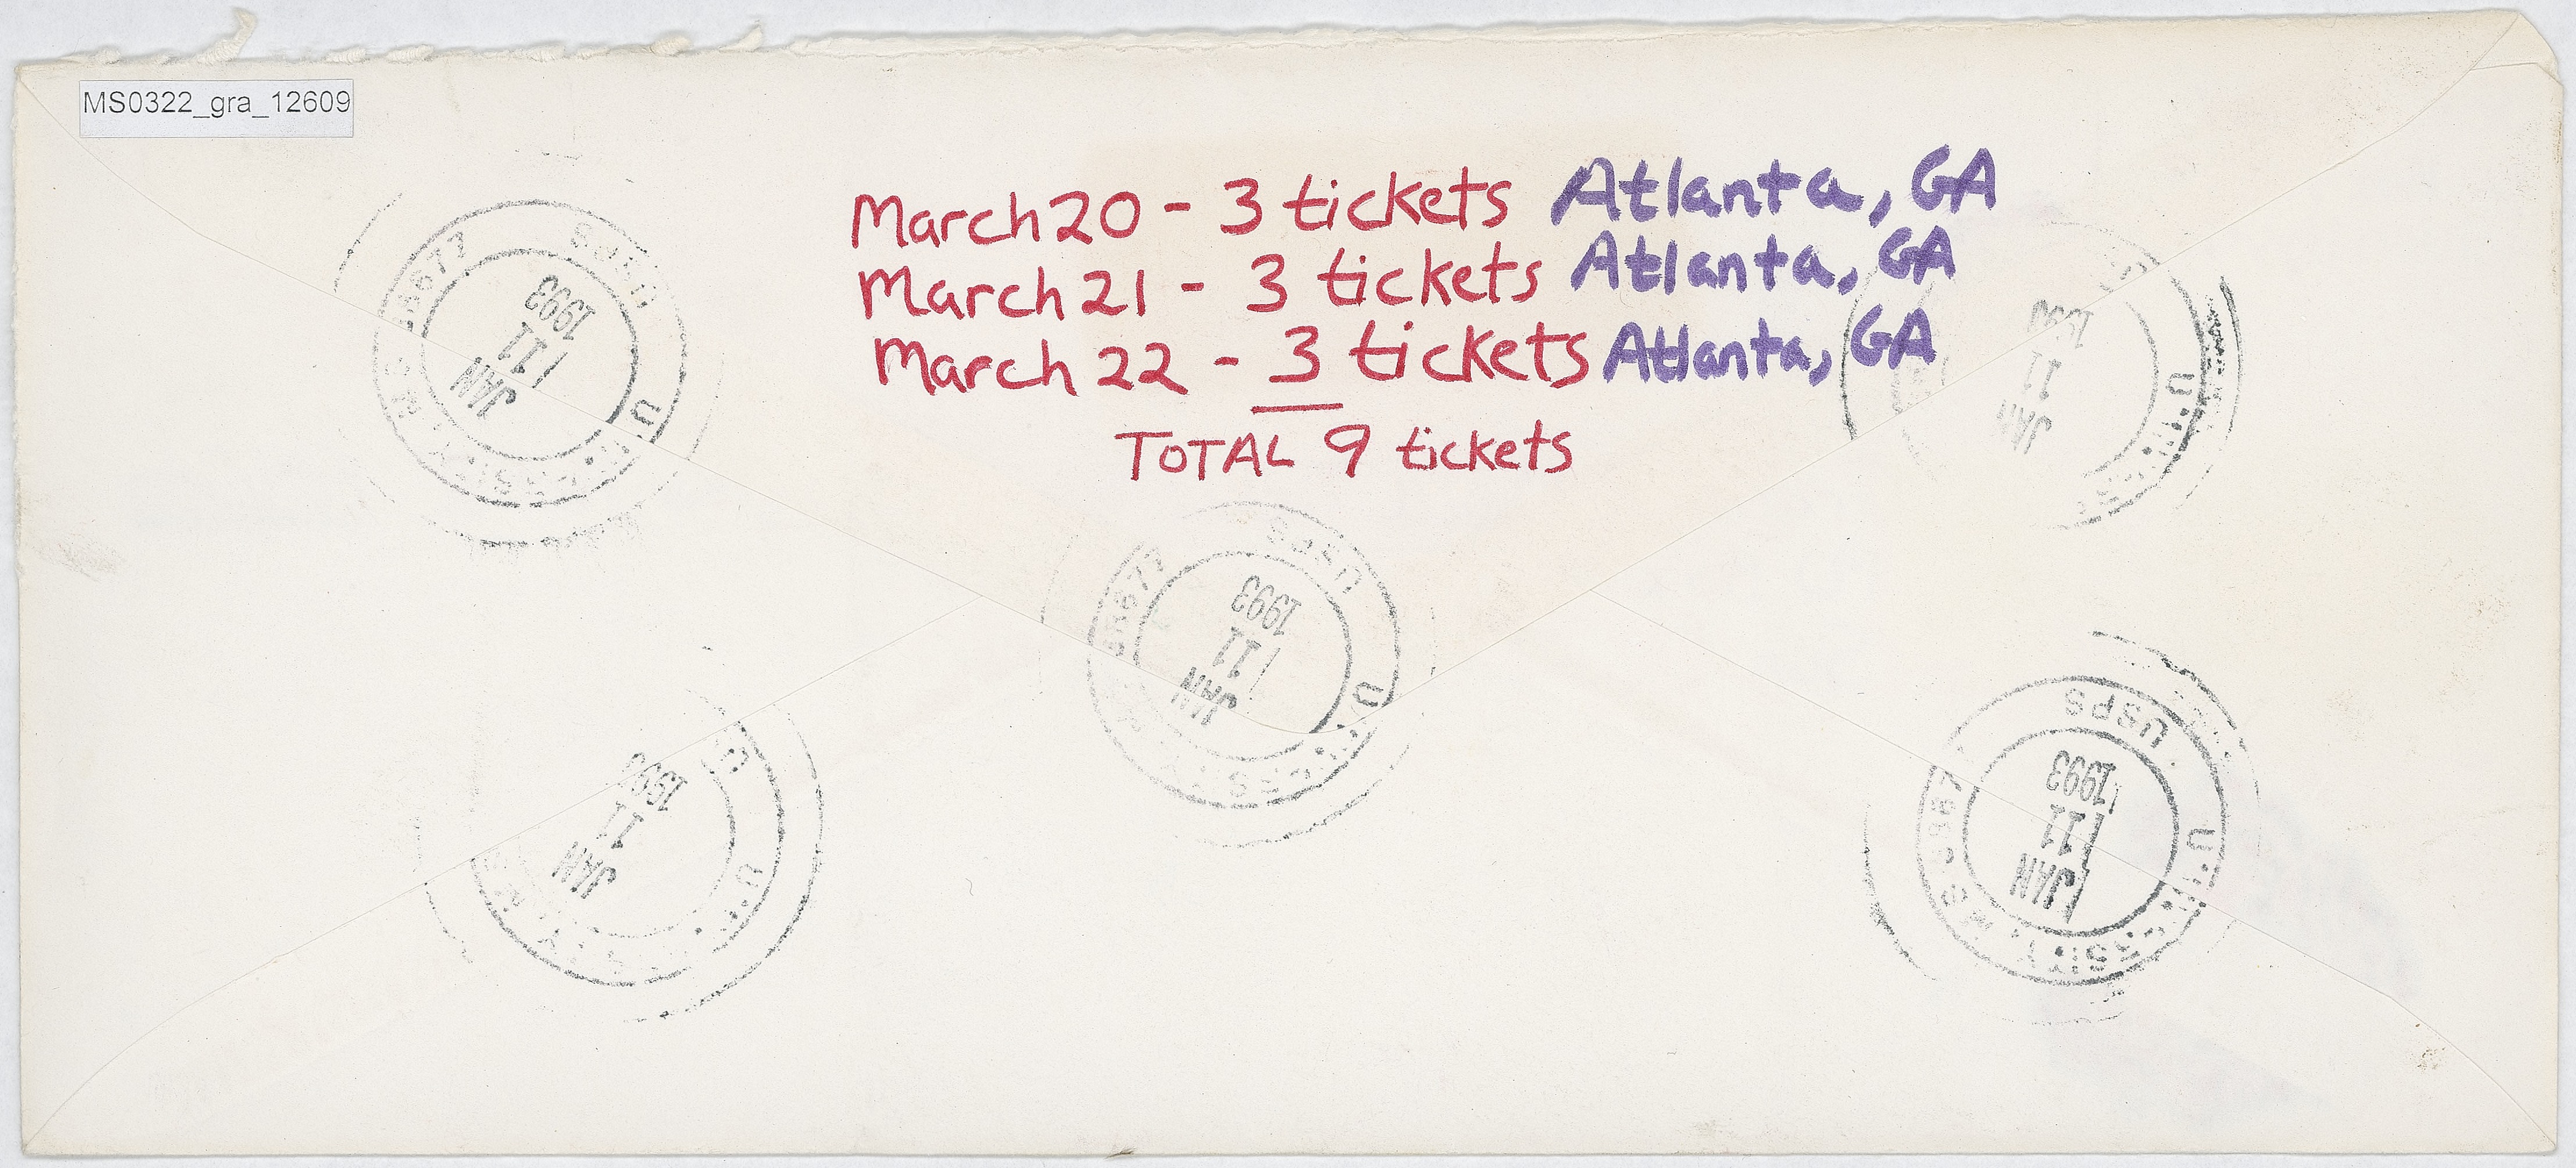 MS0322_gra_12609
March 20 - 3 tickets Atlanta, GA
March 21 - 3 tickets Atlanta, GA
March 22 - 3 tickets Atlanta, GA
TOTAL 9 tickets
USPS
1993
11
JAN
11
JAN
USPS
1993
11
JAN
11
JAN
USPS
1993
11
JAN